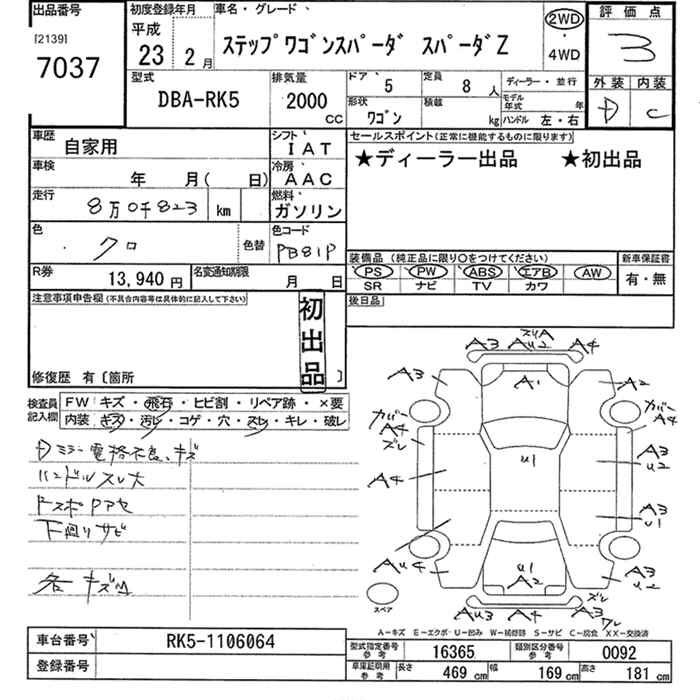 出品番号 初度登録年月 車名・グレード 評価点
[2139] 平成 2WD
7037 23 年 2 月 ステップワゴンスパーダ スパーダZ ・ 3
4WD
型式 排気量 ドア 5 定員 8 人 ディーラー・並行 外装 内装
DBA-RK5 2000 CC 形状 ワゴン 積載 kg モデル年式 年 D C
ハンドル 左・右
車歴 自家用 シフト IAT セールスポイント(正常に機能するものに限ります)
車検 年 月( 日) 冷房 AAC ★ディーラー出品 ★初出品
走行 8万0千823 km 燃料 ガソリン
色 クロ 色替 色コード PB81P
装備品(純正品に限り○をつけてください) 新車保証書
R券 13,940 円 名変通知期限 月 日 PS PW ABS エアB AW 有・無
SR ナビ TV カワ
注意事項申告欄(不具合内容等は具体的に記入して下さい) 初出品 後日品
修復歴 有〔箇所 〕
検査員記入欄 FW キズ・飛石・ヒビ割・リペア跡・×要
内装 キズ・汚レ・コゲ・穴・スレ・キレ・破レ
Dミラー電格不良、キズ
ハンドルスレ大
下廻りサビ
各キズ凹
ズリA
A3 AU2 A4
A3 A1 A2
カバーA4 カバーA4
ズレ
U1 A3
U2
A4
A3
U1
AU4 U1 A3
A2 U2
AU3 A4 A3 ズレ
ワレ
スペア
A－キズ E－エクボ U－凹み W－補修跡 S－サビ C－腐食 XX－交換済
車台番号 RK5-1106064 型式指定番号 参考 16365 類別区分番号 参考 0092
登録番号 車庫証明用 参考 長さ 469 cm 幅 169 cm 高さ 181 cm